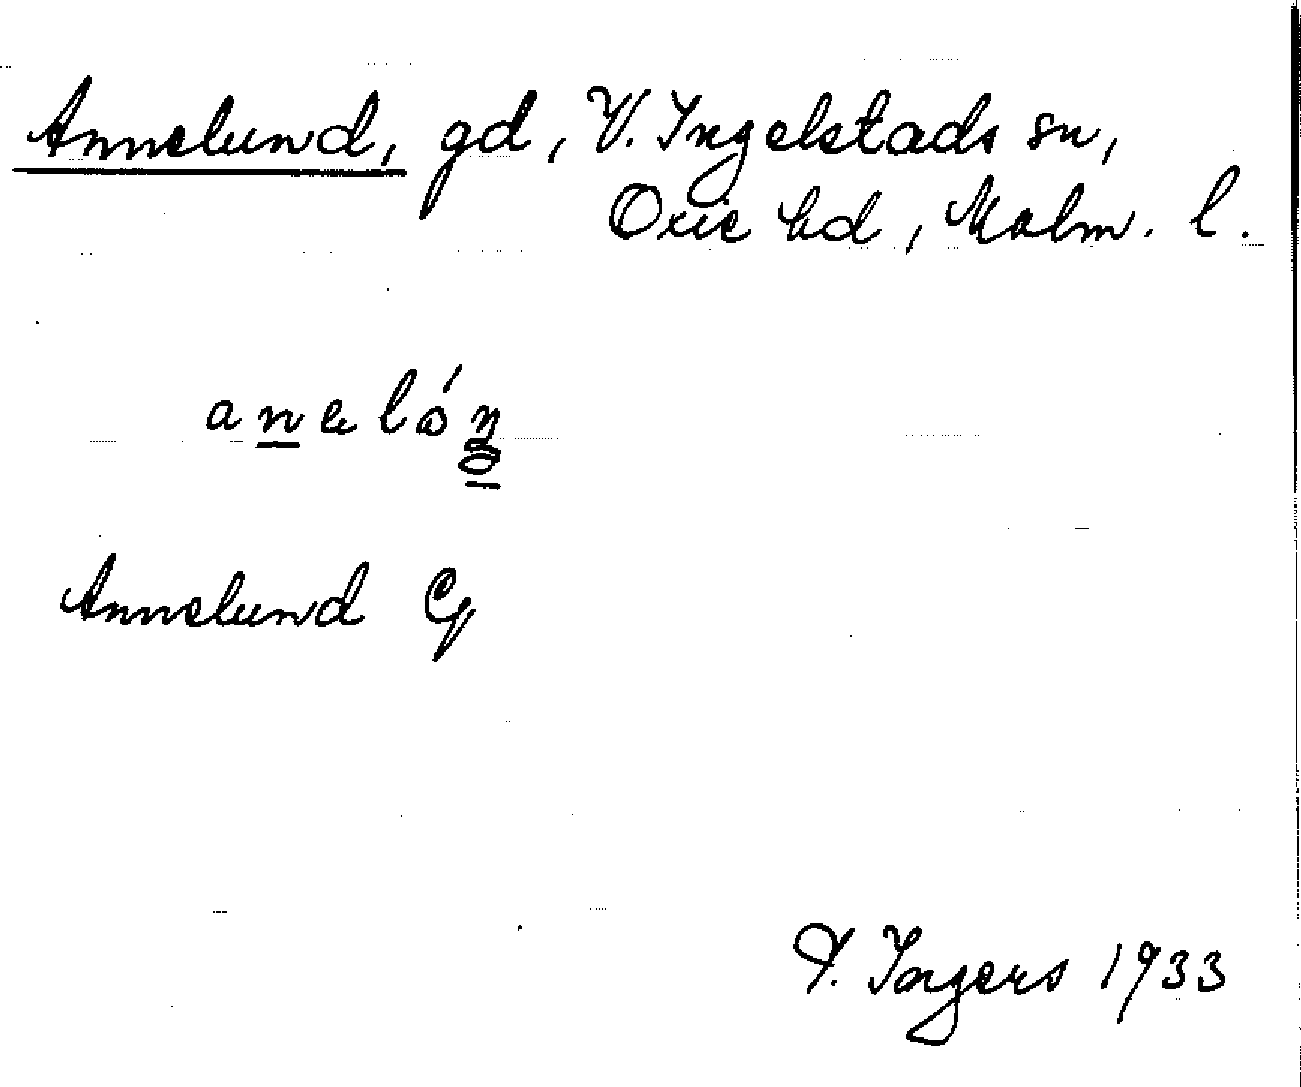 Annelund, gd, V. Ingelstads sn,
Oxie hd, Malm. l.
Annelund
Ingers 1933